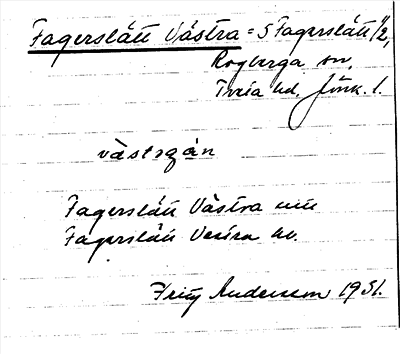 Fagerslätt Västra = 5 Fagerslätt 1/2,
Rogberga sn,
Tveta hd. Jönk. l.
västrgán
Fagerslätt Västra
Fagerslätt Vestra
Fritz Andersson 1931.